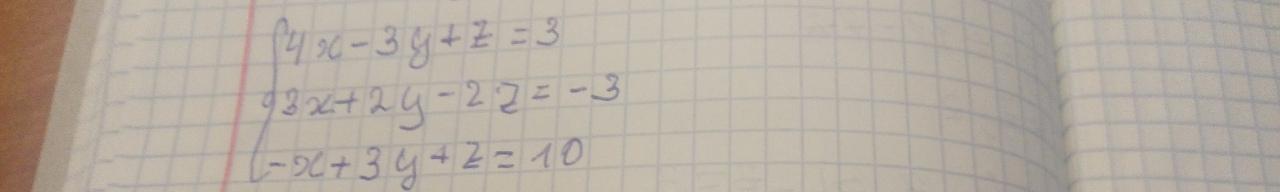 4x-3y+z=3
3x+2y-2z=-3
-x+3y+z=10